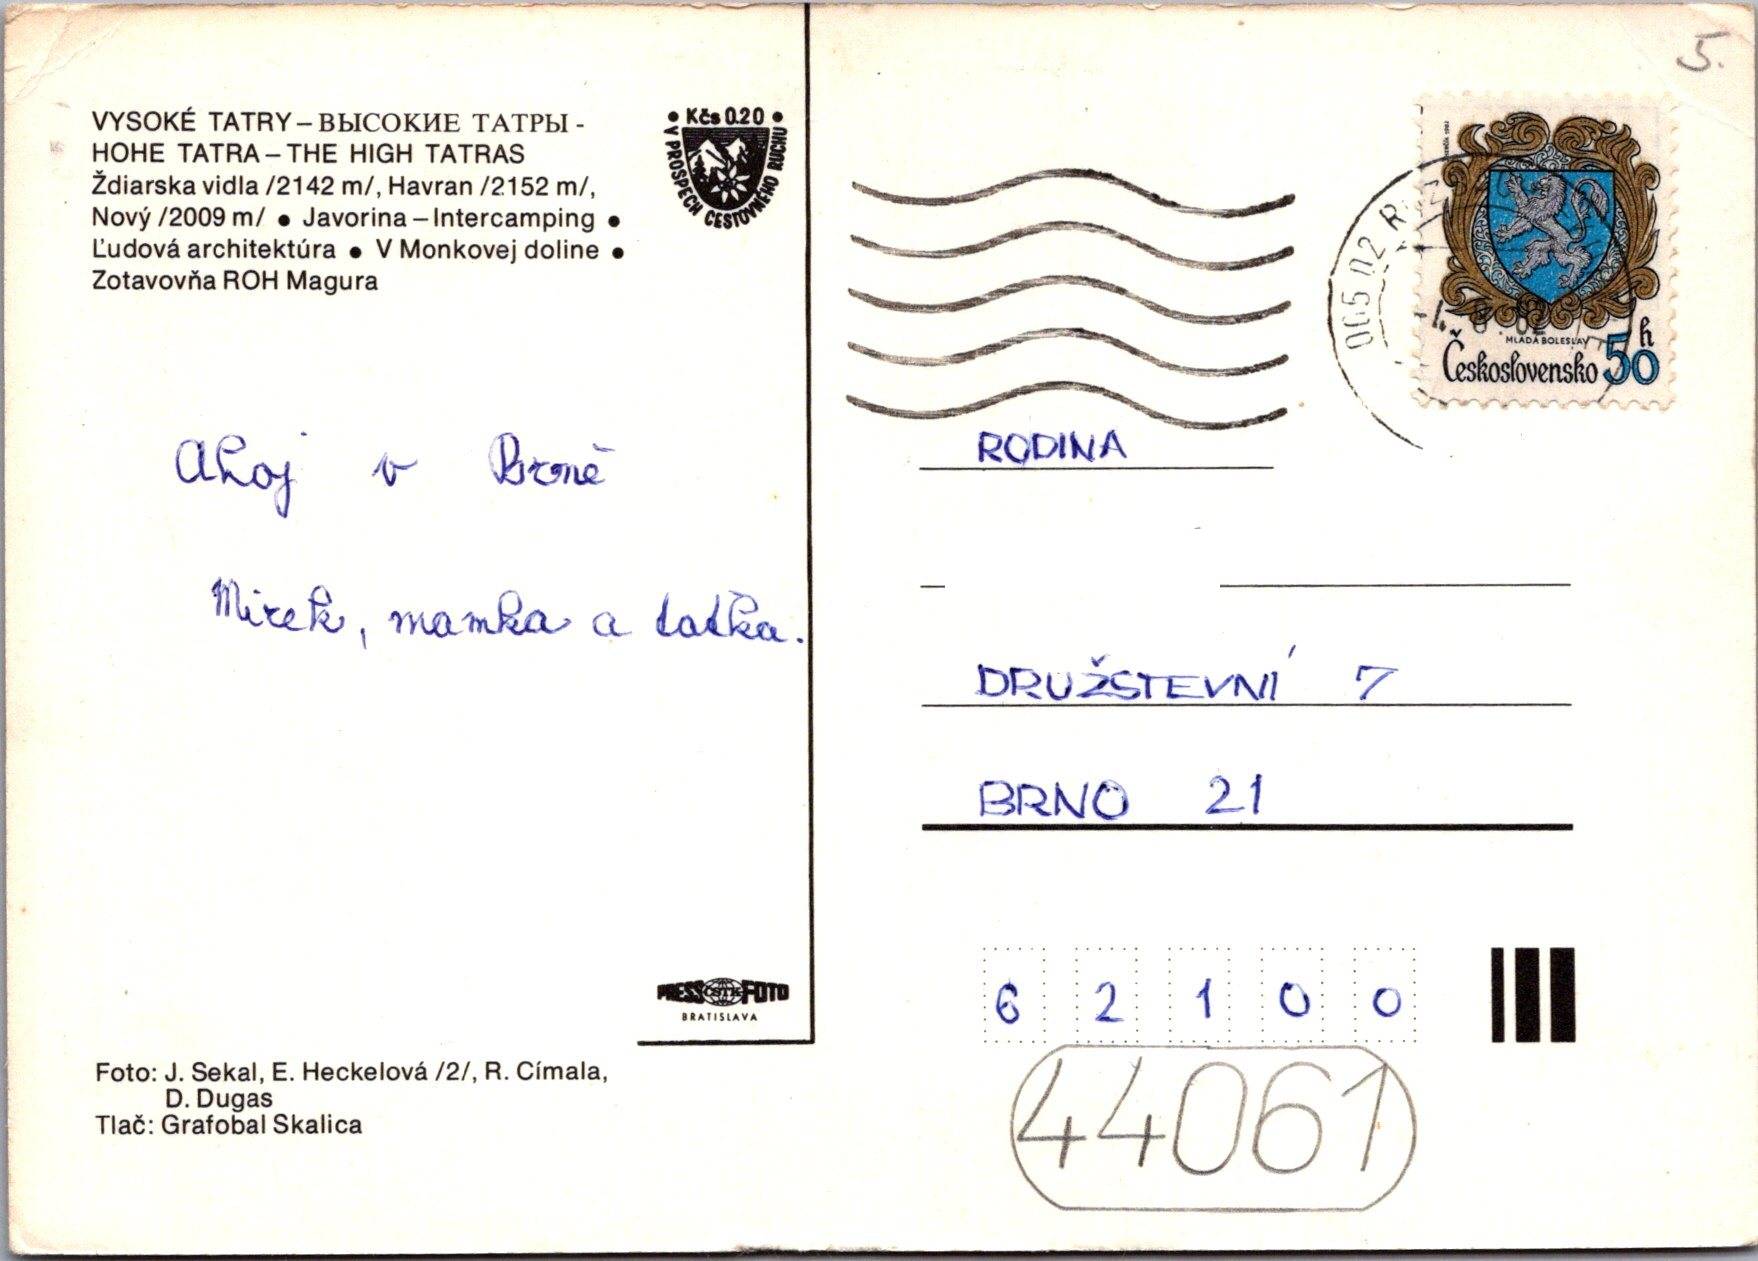 VYSOKÉ TATRY – ВЫСОКИЕ ТАТРЫ -
HOHE TATRA – THE HIGH TATRAS
Ždiarska vidla /2142 m/, Havran /2152 m/,
Nový /2009 m/ ● Javorina – Intercamping ●
Ľudová architektúra ● V Monkovej doline ●
Zotavovňa ROH Magura
• Kčs 0.20 •
V PROSPECH CESTOVNÉHO RUCHU
Ahoj v Brně
Mirek, mamka a taťka.
PRESS ČSTK FOTO
BRATISLAVA
Foto: J. Sekal, E. Heckelová /2/, R. Címala,
D. Dugas
Tlač: Grafobal Skalica
5.
MLADÁ BOLESLAV
Československo 50 h
RODINA
DRUŽSTEVNÍ 7
BRNO 21
62100
44061